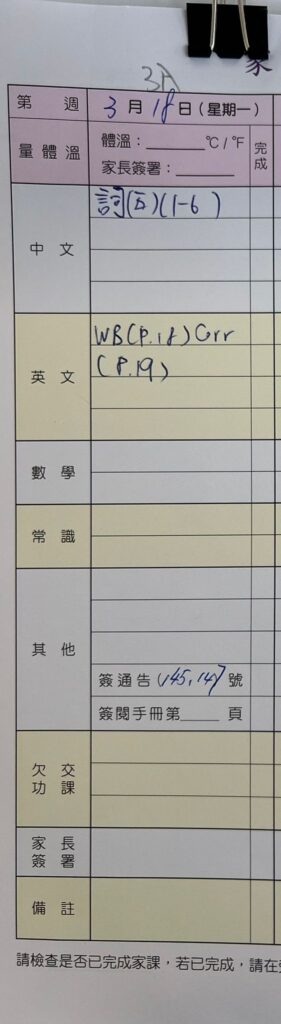 家
3A
第 週 3月18日(星期一)
量體溫 體溫：______℃/℉ 完成
家長簽署：______
中文 詞(五)(1-6)
英文 WB(P.18) Corr
(P.19)
數學
常識
其他
簽通告(145,147)號
簽閱手冊第____頁
欠交功課
家長簽署
備註
請檢查是否已完成家課，若已完成，請在